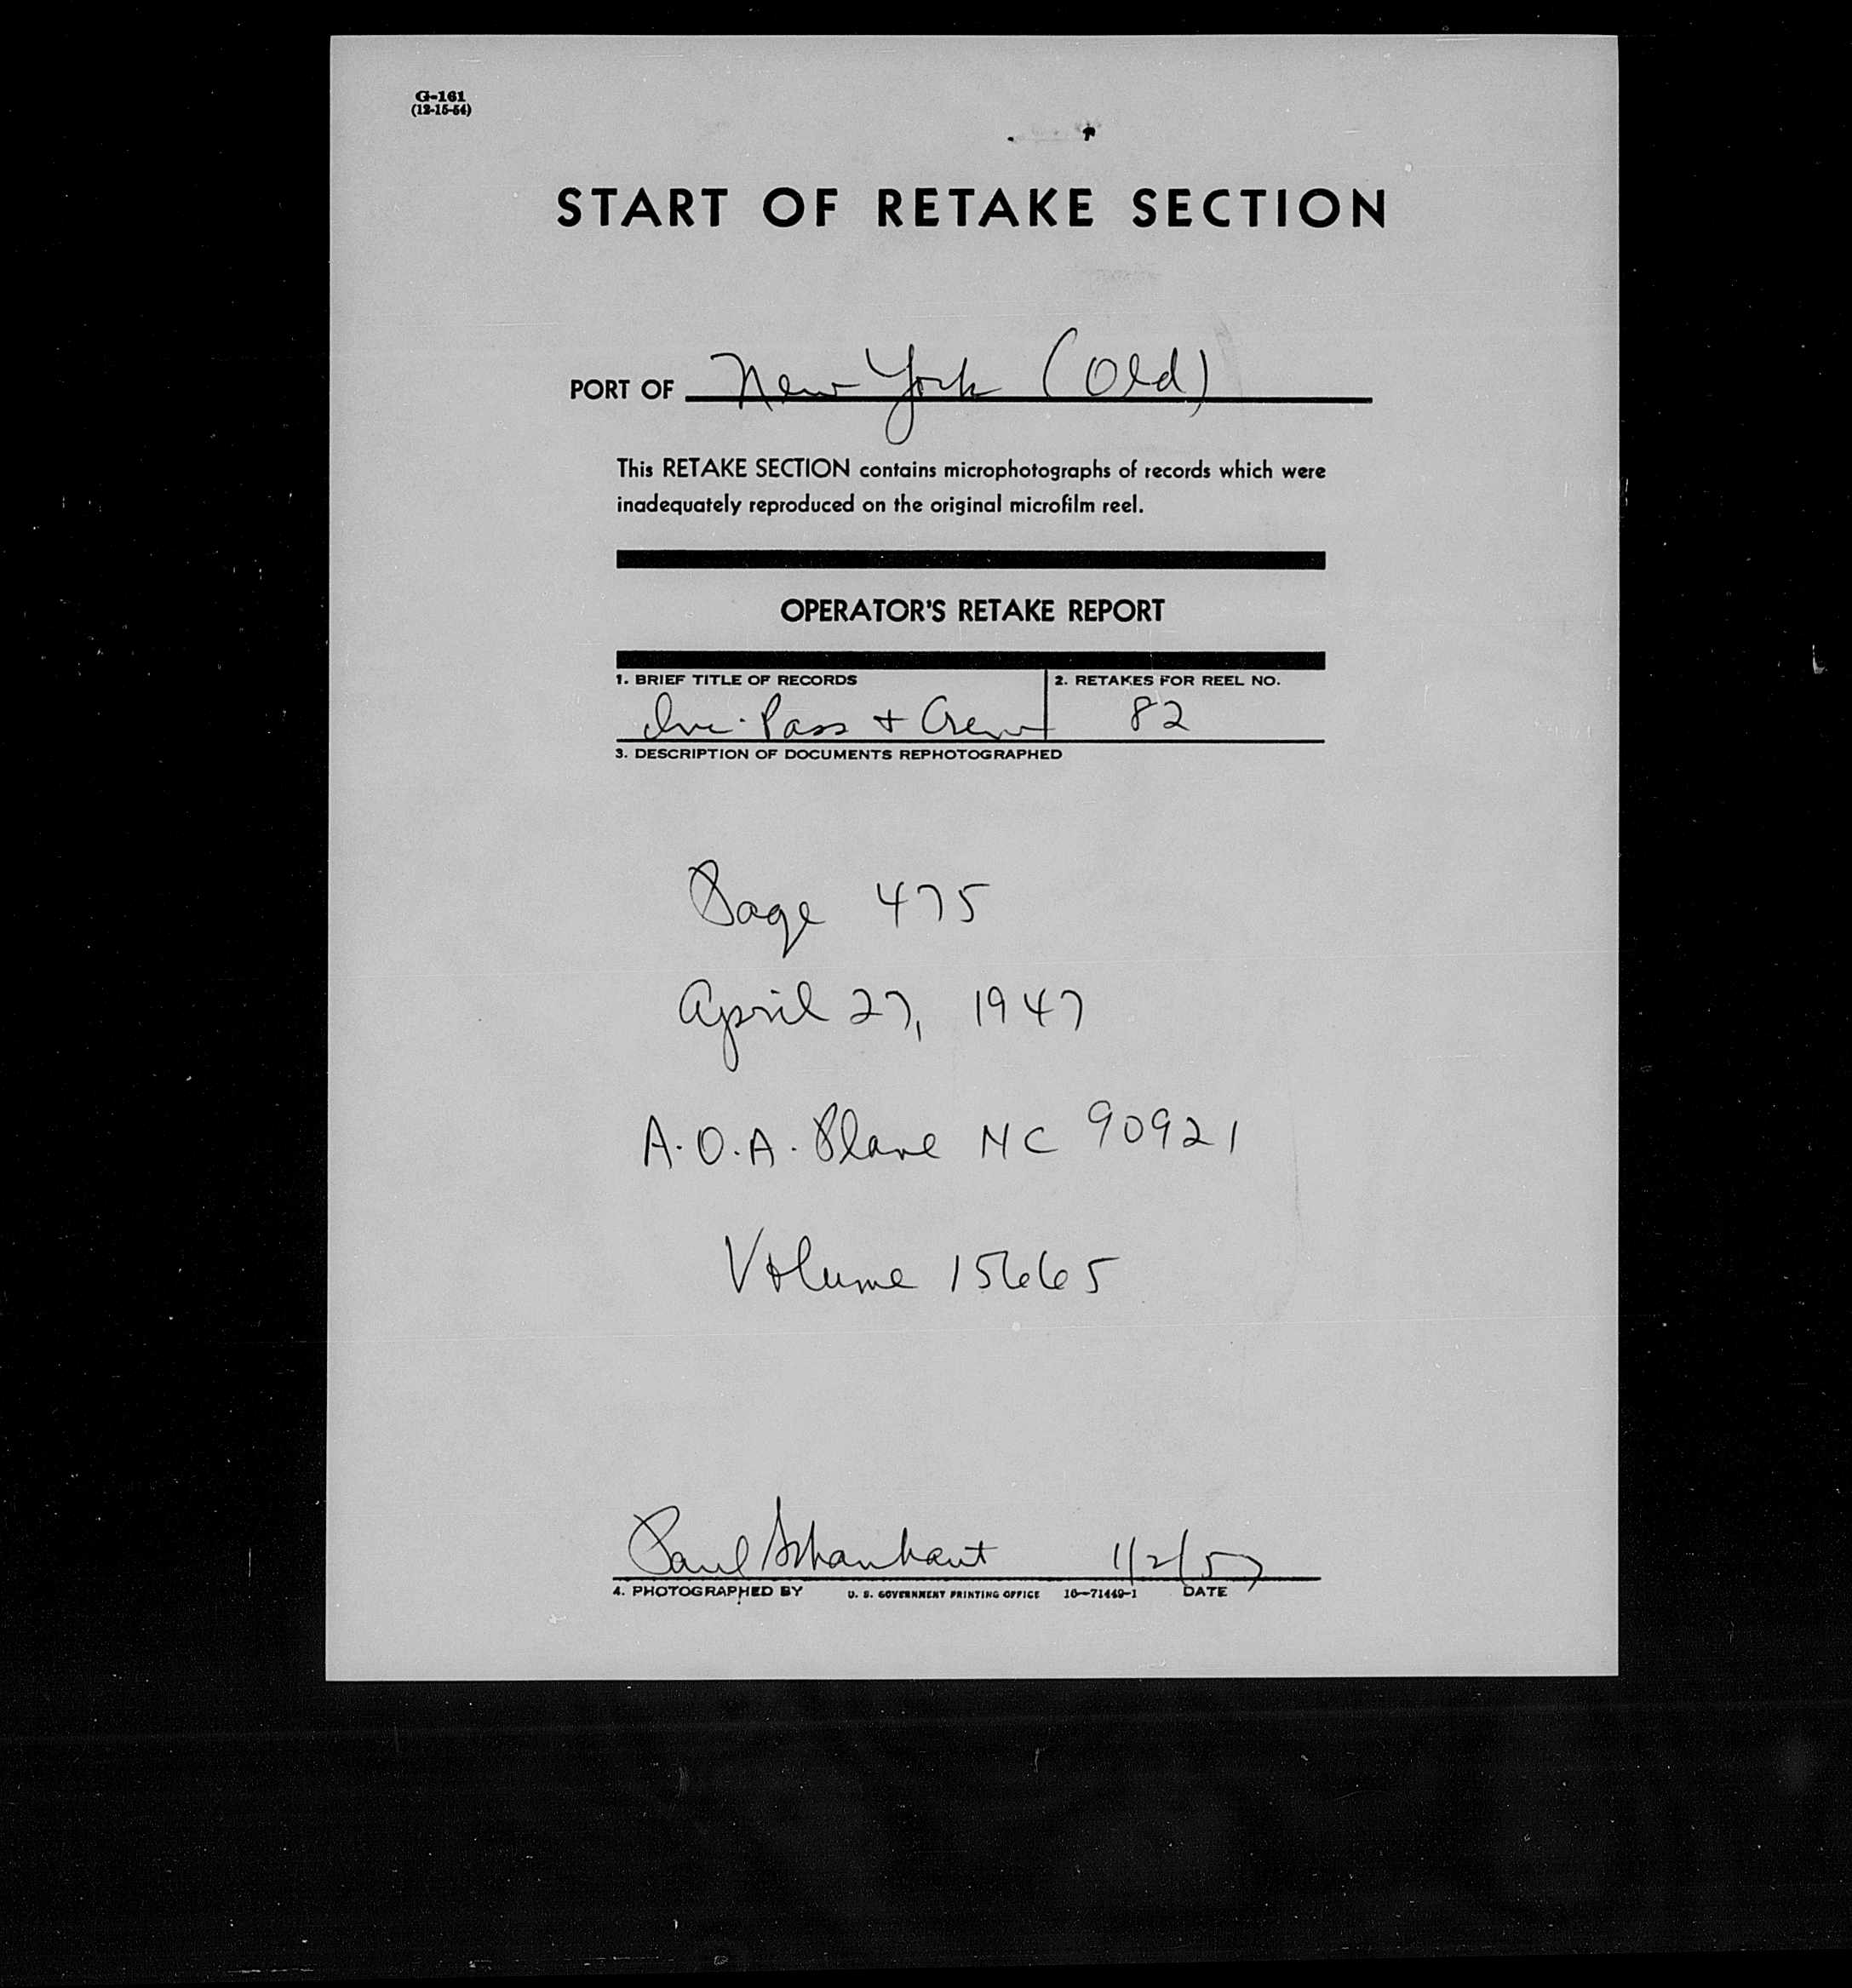 G-161
(12-15-54)
START OF RETAKE SECTION
PORT OF New York (Old)
This RETAKE SECTION contains microphotographs of records which were
inadequately reproduced on the original microfilm reel.
OPERATOR'S RETAKE REPORT
1. BRIEF TITLE OF RECORDS 2. RETAKES FOR REEL NO.
Pass + Crew 82
3. DESCRIPTION OF DOCUMENTS REPHOTOGRAPHED
Page 475
April 27, 1947
A.O.A. Plane NC 90921
Volume 15665
Paul 1/2/57
4. PHOTOGRAPHED BY U. S. GOVERNMENT PRINTING OFFICE 16—71449-1 DATE